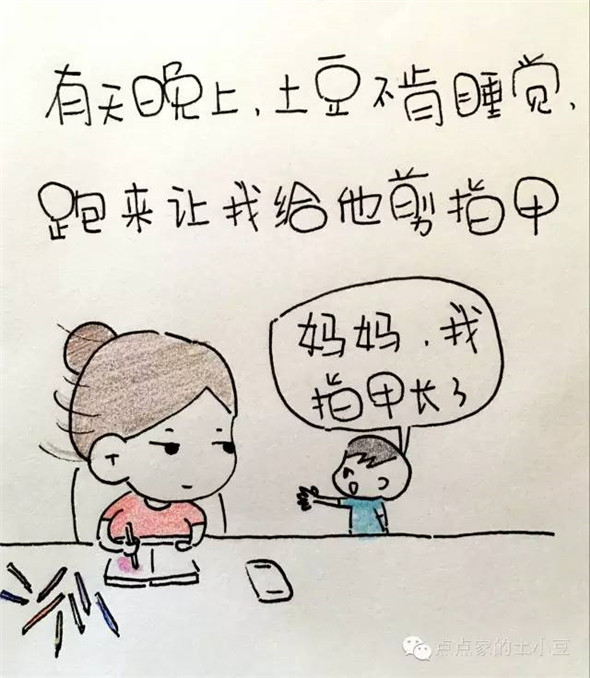 有天晚上，土豆不肯睡觉，
跑来让我给他剪指甲
妈妈，我
指甲长了
卢点家的土小豆